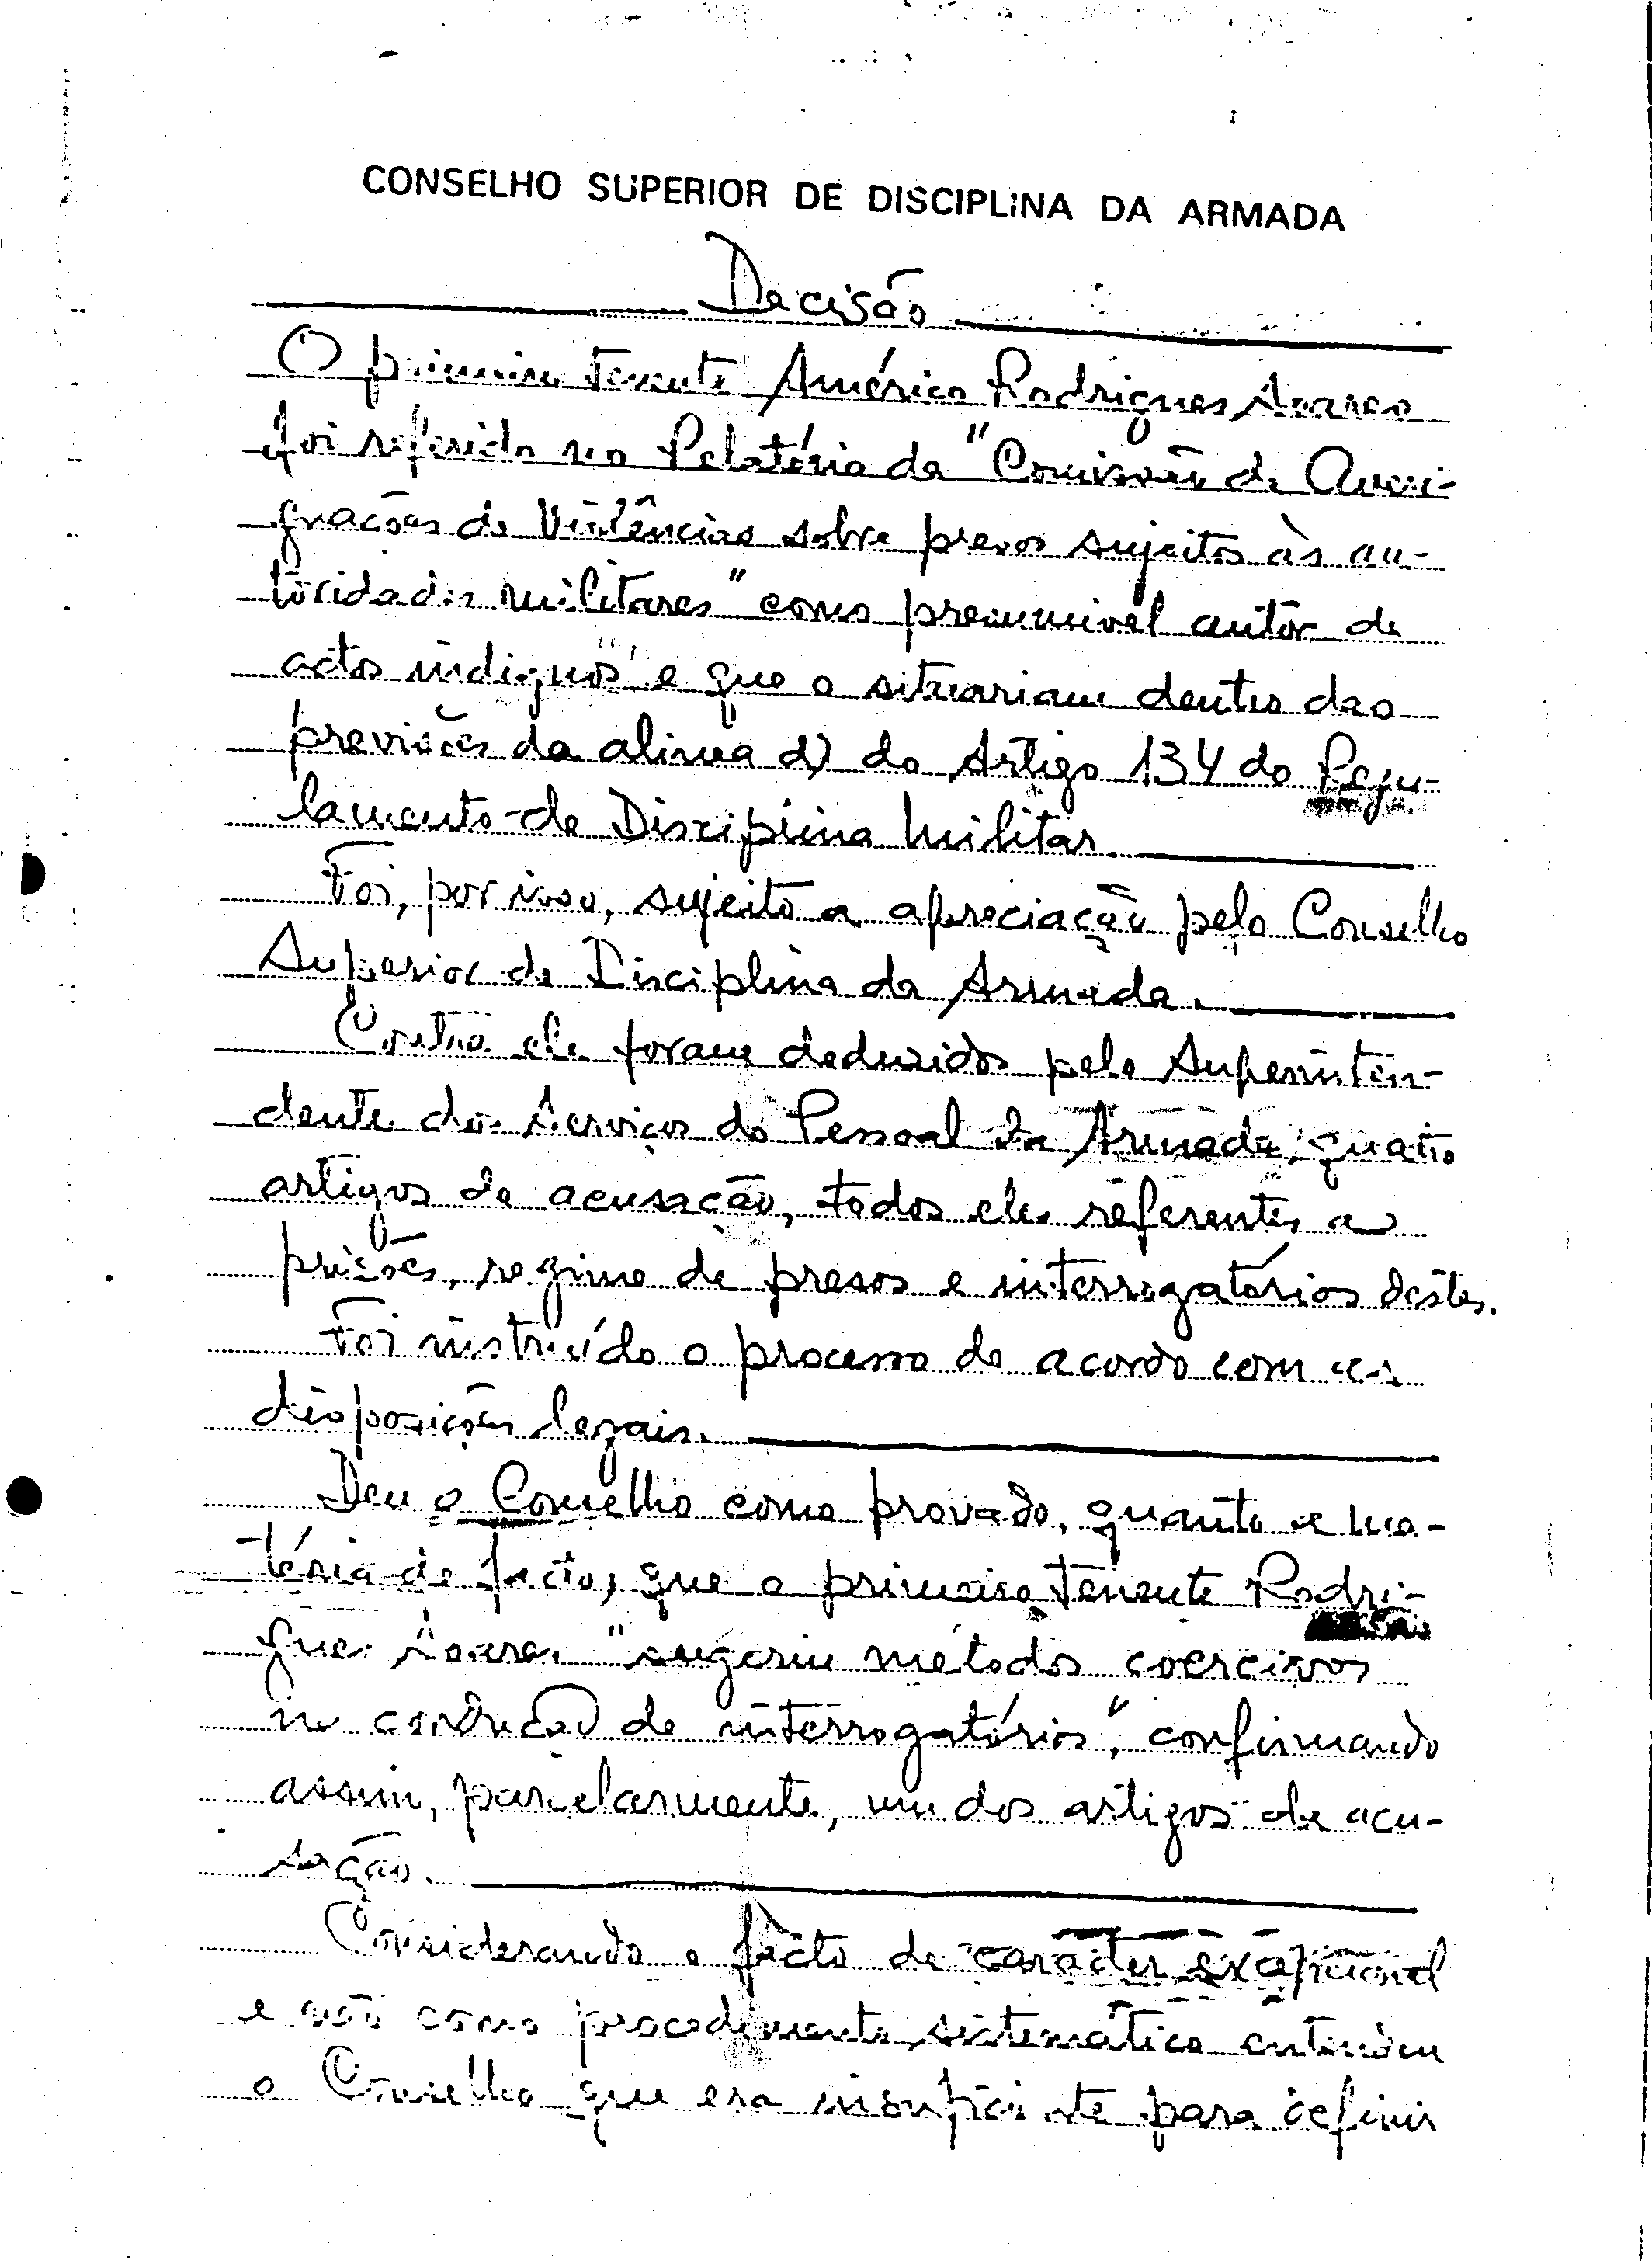 CONSELHO SUPERIOR DE DISCIPLINA DA ARMADA
Decisão
O primeiro tenente Américo Rodrigues Soares
foi referido no Relatório da "Comissão de Averi-
guações de Violências sobre presos sujeitos às au-
toridades militares" como presumível autor de
actos indignos e que o situariam dentro das
previsões da alinea d) do Artigo 134 do Regu-
lamento de Disciplina Militar.
Foi, por isso, sujeito a apreciação pelo Conselho
Superior de Disciplina da Armada.
Contra ele foram deduzidos pelo Superinten-
dente dos Serviços do Pessoal da Armada, quatro
artigos de acusação, todos eles referentes a
prisões, regime de presos e interrogatórios destes.
Foi instruído o processo de acordo com as
disposições legais.
Deu o Conselho como provado, quanto a ma-
téria de facto, que o primeiro tenente Rodri-
gues Soares "sugeriu métodos coercivos
na condução de interrogatórios", confirmando
assim, parcelarmente, um dos artigos de acu-
sação.
Considerando o facto de carácter excepcional
e não como procedimento sistemático entendeu
o Conselho que era insuficiente para definir